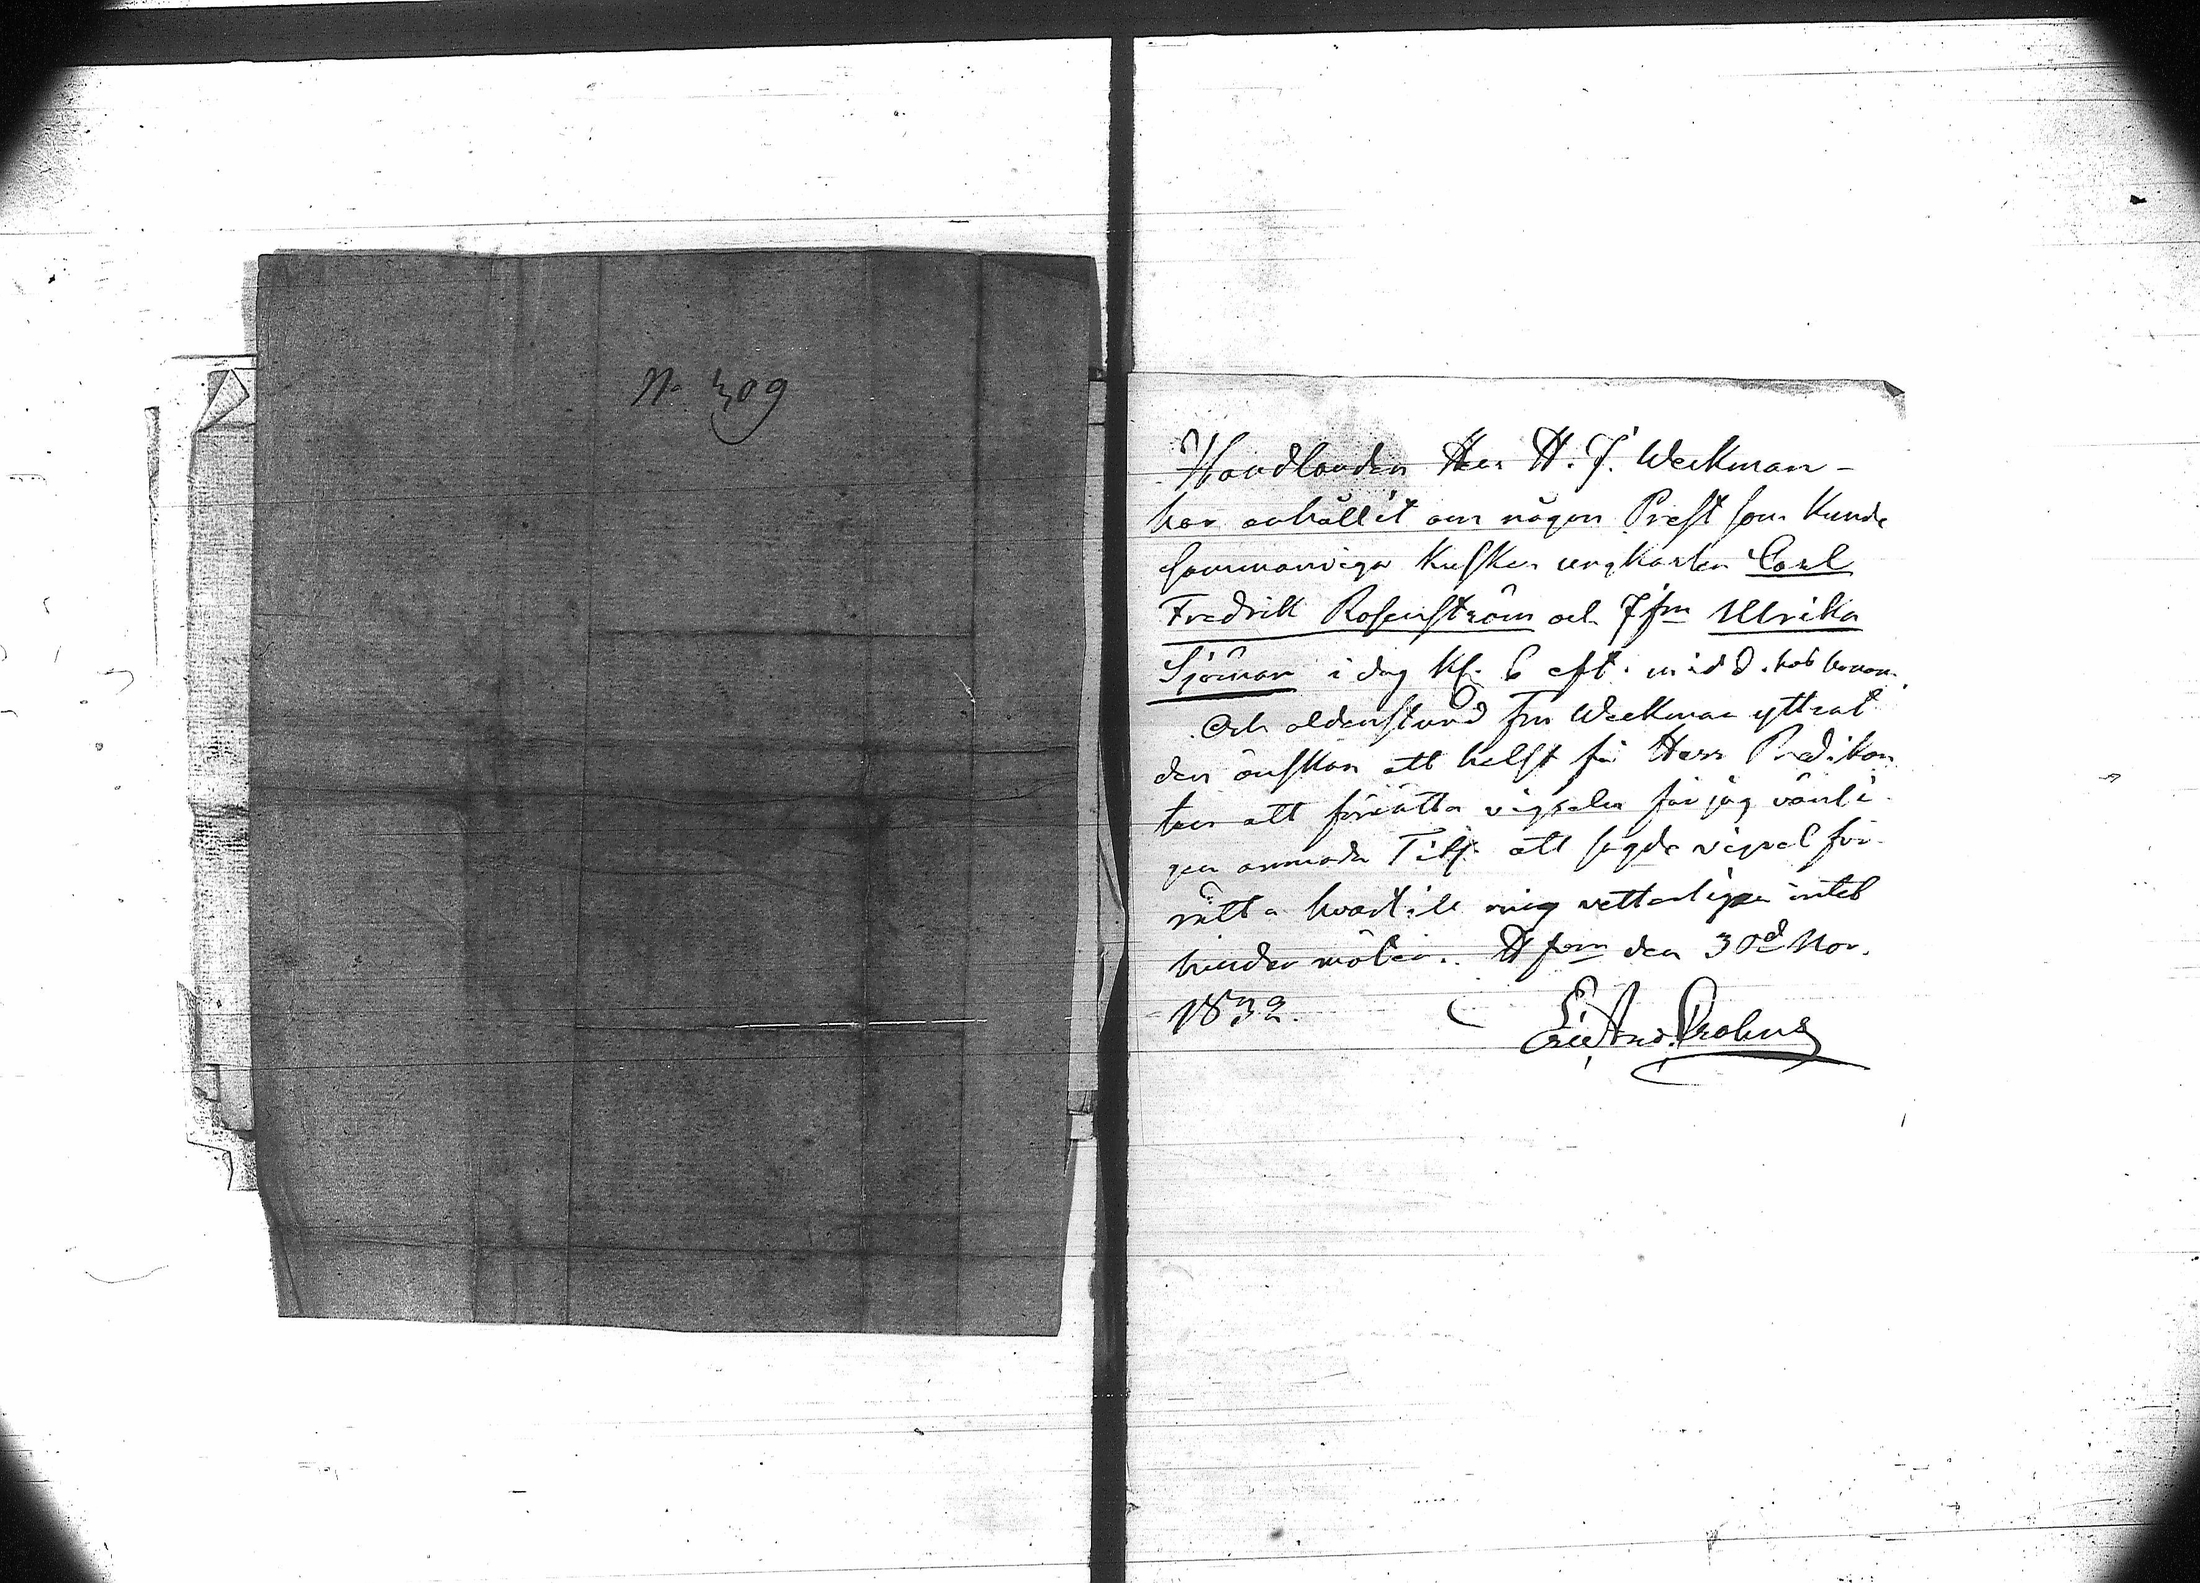 No 309
Handlanden Herr H. J. Weckman –
har anhållit om någon Prest som kunde
sammanviga kusken ungkarlen Carl
Fredrik Rosenström och Jfrn Ulrika
Sjöman i dag kl. 6 eft. midd. hos honom.
Och aldenstund fru Weckman yttrat
den önskan att helst få Herr Predikan
ten att förrätta vigseln får jag vänli-
gen anmoda Tit. att sagde vigsel för-
rätta hvartill mig vetterligen intet
hinder möter. H:fors den 30d Nov.
1832.
Eric And. Crohns